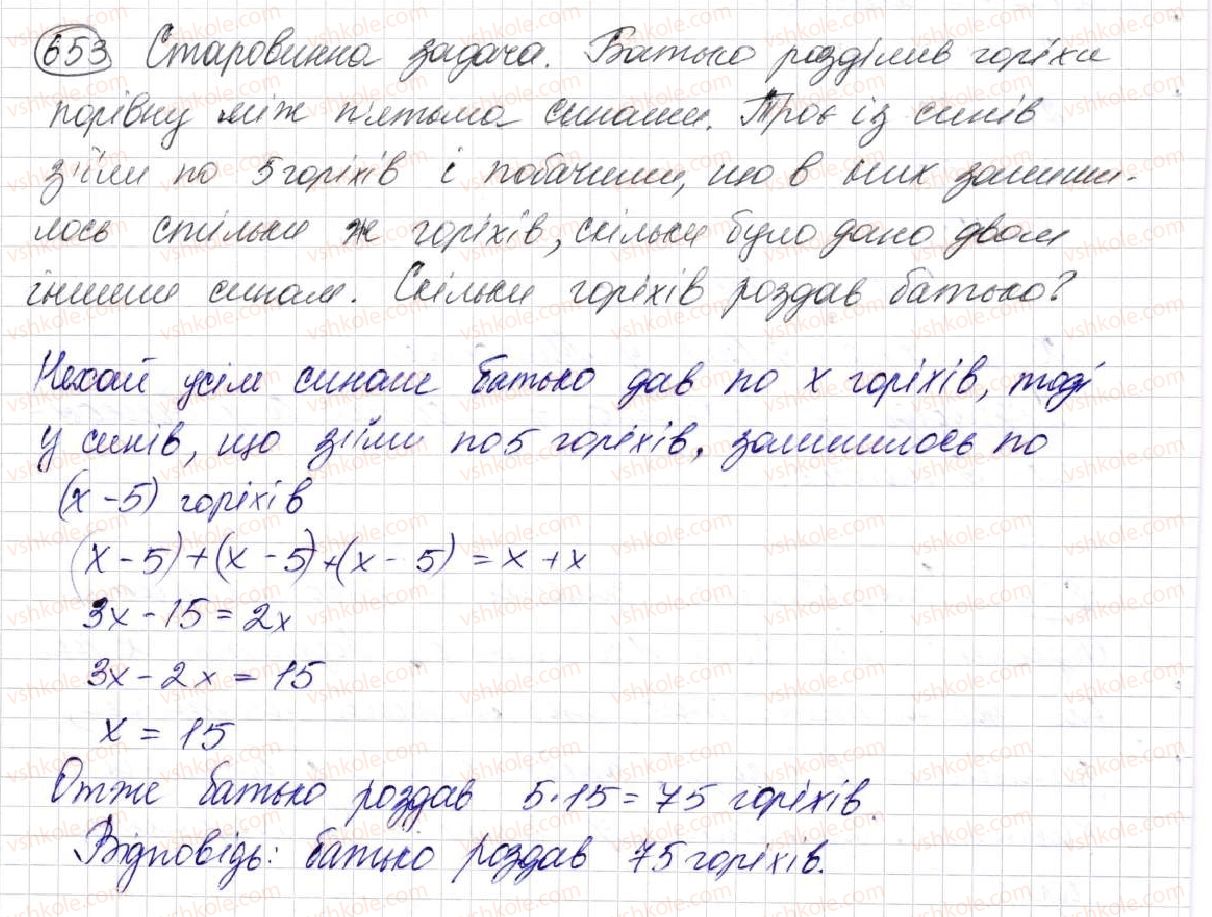 653 Старовинна задача. Батько розділив горіхи
порівну між п'ятьма синами. Троє із синів
з'їли по 5 горіхів і побачили, що в них залиши-
лось стільки ж горіхів, скільки було дано двом
іншим синам. Скільки горіхів роздав батько?
Нехай усім синам батько дав по x горіхів, тоді
у синів, що з'їли по 5 горіхів, залишилось по
(x - 5) горіхів
(x - 5) + (x - 5) + (x - 5) = x + x
3x - 15 = 2x
3x - 2x = 15
x = 15
Отже батько роздав 5·15 = 75 горіхів.
Відповідь: батько роздав 75 горіхів.